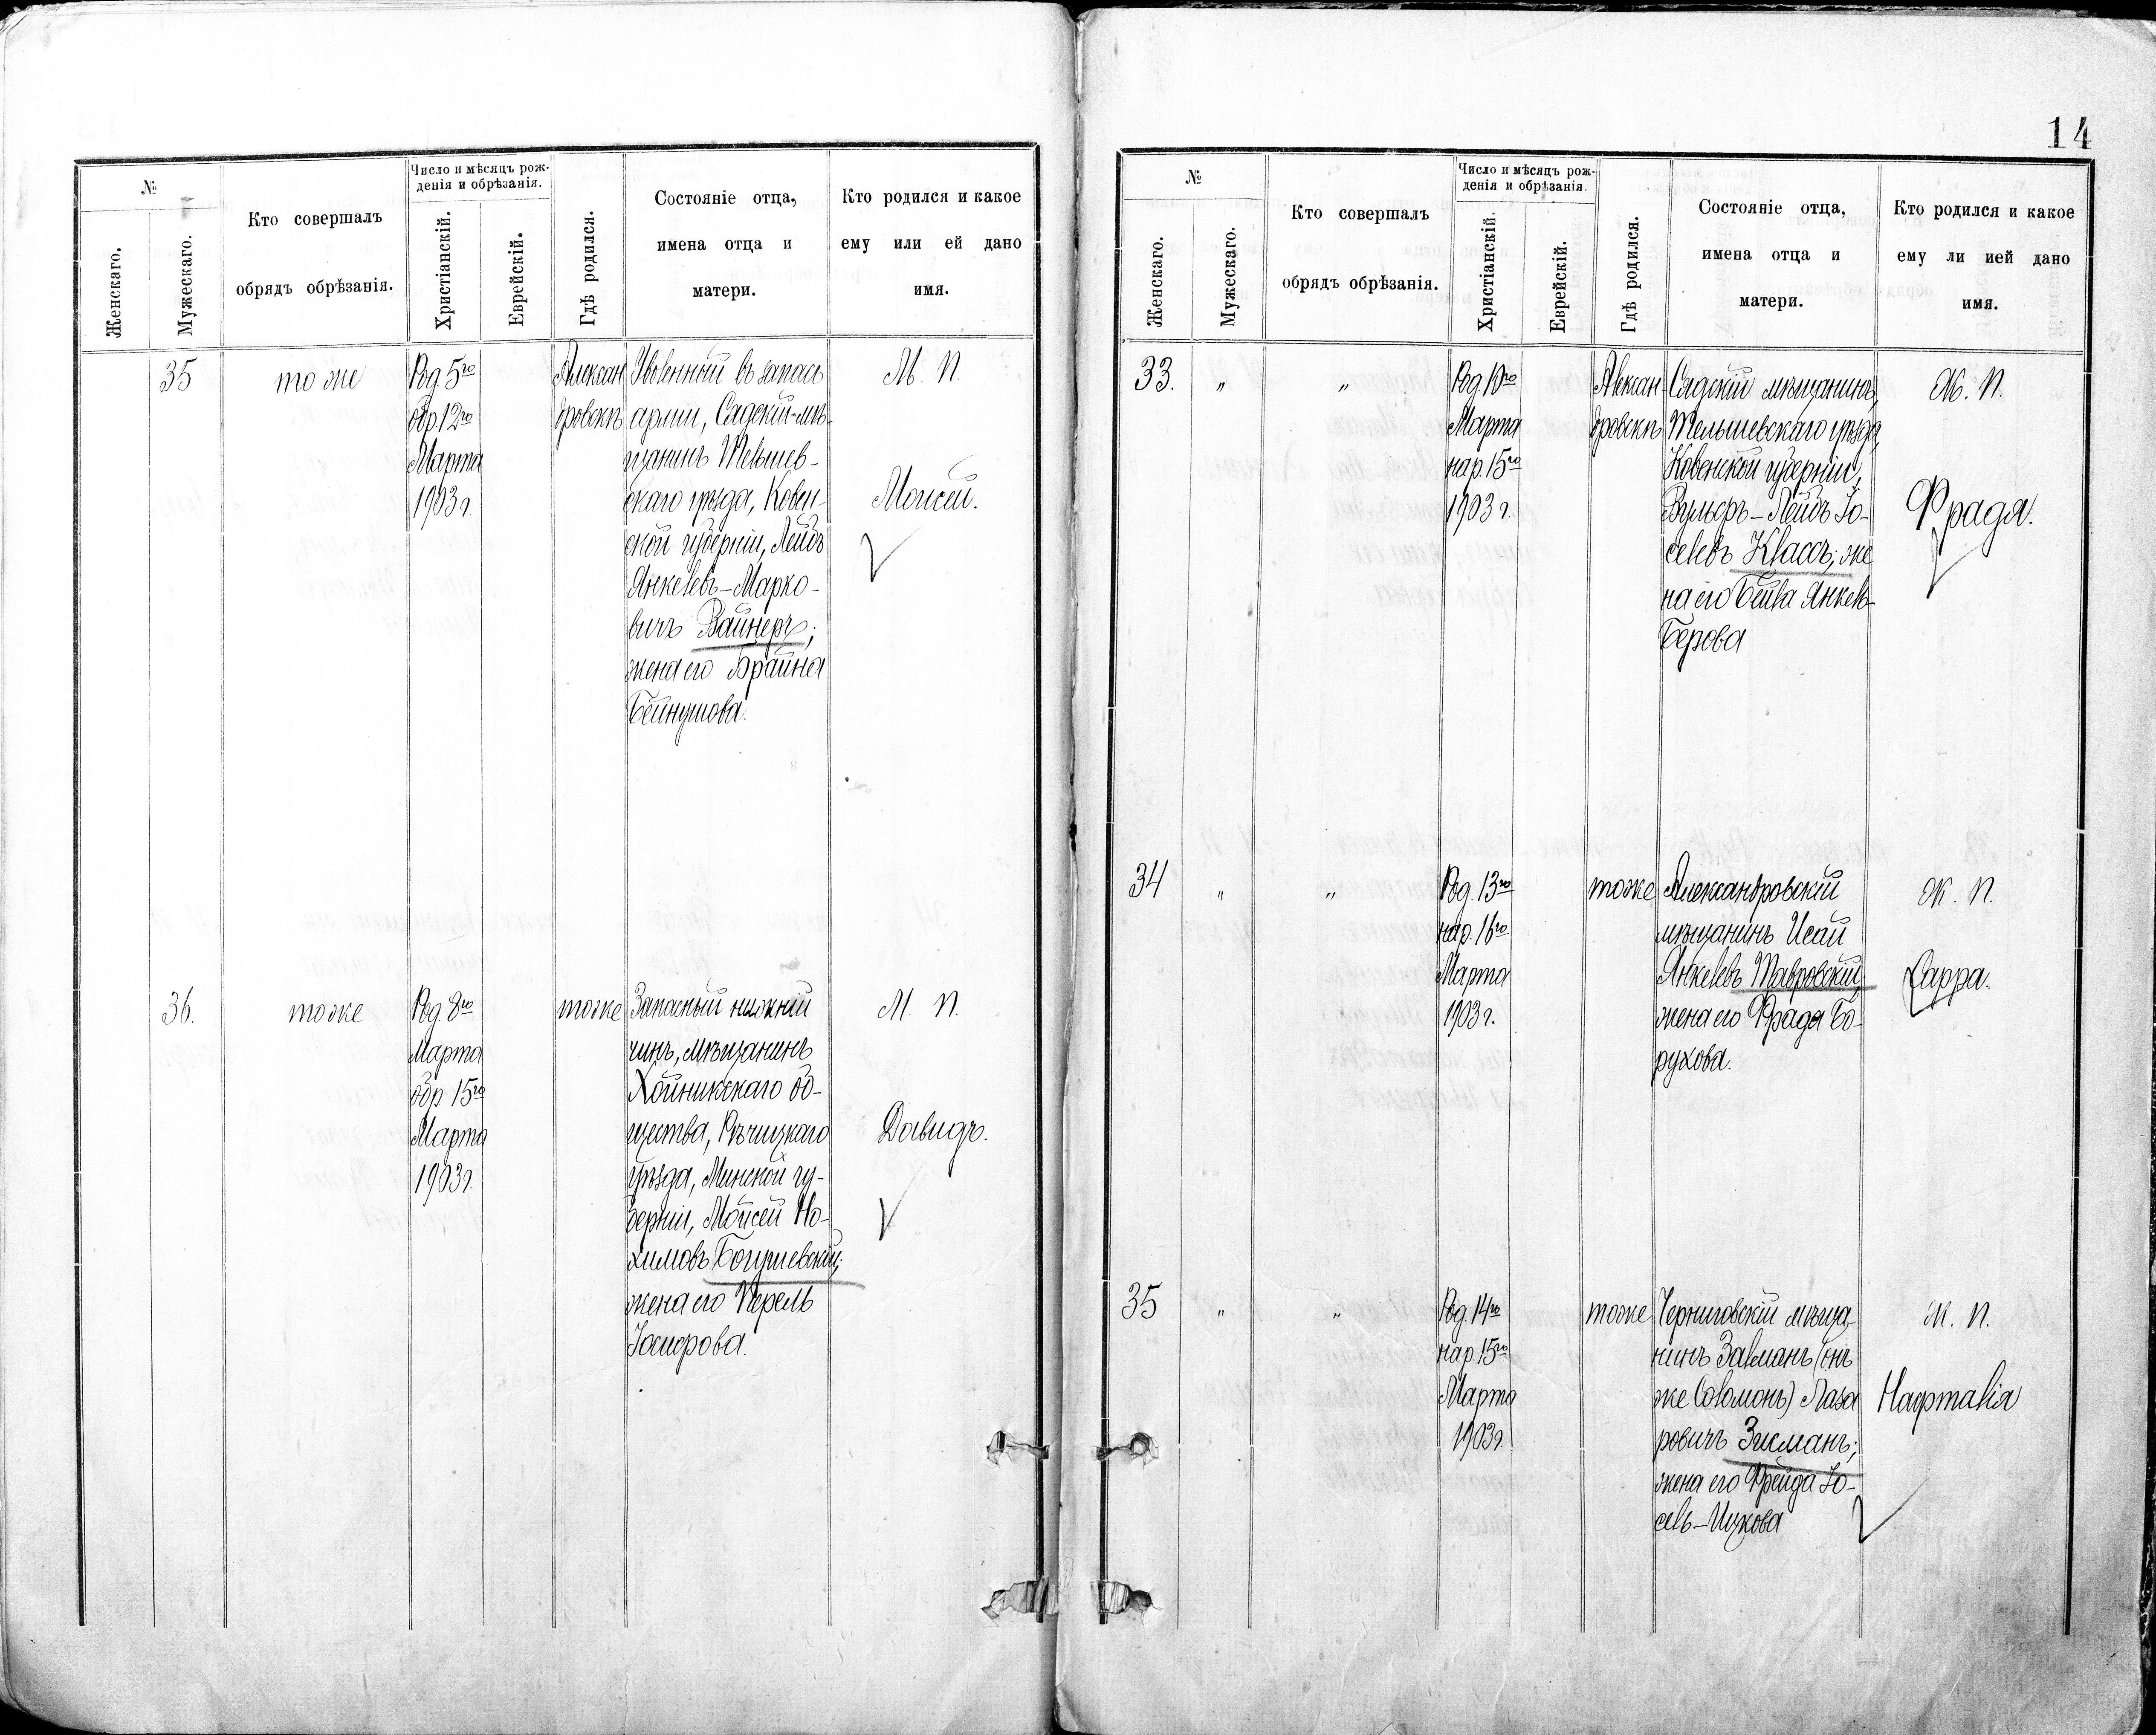 14
№
Женскаго.
Мужескаго.
Кто совершалъ
обрядъ обрѣзанія.
Число и мѣсяцъ рож-
денія и обрѣзанія.
Христіанскій.
Еврейскій.
Гдѣ родился.
Состояніе отца,
имена отца и
матери.
Кто родился и какое
ему или ей дано
имя.
35
тоже
Род. 5го
обр. 12го
Марта
1903 г.
Алексан
дровскъ
Уволенный въ запасъ
арміи, Сядскій мѣ-
щанинъ Тельшев-
скаго уѣзда, Ковен-
ской губерніи, Лейбъ
Янкелевъ-Марко-
вичъ Вайнеръ;
жена его Брайна
Бейнушова.
М. П.
Моисей.
36.
тоже
Род. 8го
Марта
обр. 15го
Марта
1903 г.
тоже
Запасный нижній
чинъ, мѣщанинъ
Хойникскаго об-
щества, Рѣчицкаго
уѣзда, Минской гу-
берніи, Мойсей Но-
химовъ Богушевскій;
жена его Перель
М. П.
Давидъ.
№
Женскаго.
Мужескаго.
Кто совершалъ
обрядъ обрѣзанія.
Число и мѣсяцъ рож-
денія и обрѣзанія.
Христіанскій.
Еврейскій.
Гдѣ родился.
Состояніе отца,
имена отца и
матери.
Кто родился и какое
ему ли ией дано
имя.
33.
"
"
Род. 10го
Марта
нар. 15го
1903 г.
Алексан-
дровскъ
Сядскій мѣщанинъ,
Тельшевскаго уѣзда,
Ковенской губерніи,
Вульфъ-Лейбъ Іо-
селевъ Классъ; же
на его Бейла Янкель-
Берова
Ж. П.
Фрада.
34
"
"
Род. 13го
нар. 16го
Марта
1903 г.
тоже
Александровскій
мѣщанинъ Исай
Янкелевъ Тавровскій;
жена его Фрада Бо-
рухова.
Ж. П.
Сарра.
35
"
"
Род. 14го
нар. 15го
Марта
1903 г.
тоже
Черниговскій мѣща-
нинъ Залманъ (онъ
же Соломонъ) Лаза
ровичъ Зисманъ;
жена его Фрейда Іо-
сель-Ицкова
Ж. П.
Нафталія